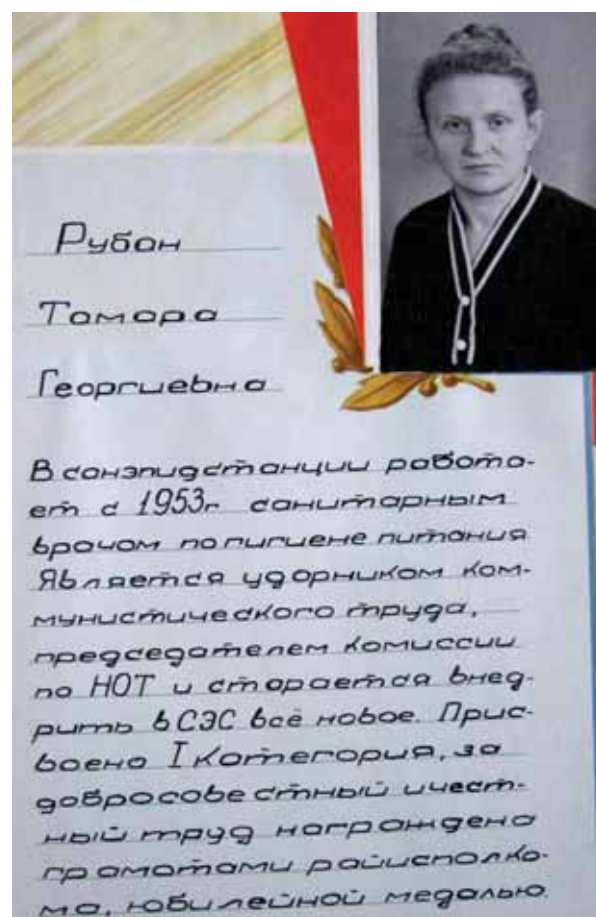 Рубан
Тамара
Георгиевна
В санэпидстанции работа-
ет с 1953г санитарным
врачом по гигиене питания
Является ударником ком-
мунистического труда,
председателем комиссии
по НОТ и старается внед-
рить в СЭС всё новое. Прис-
воено I категория, за
добросовестный и чест-
ный труд награждена
грамотами райисполко-
ма, юбилейной медалью.